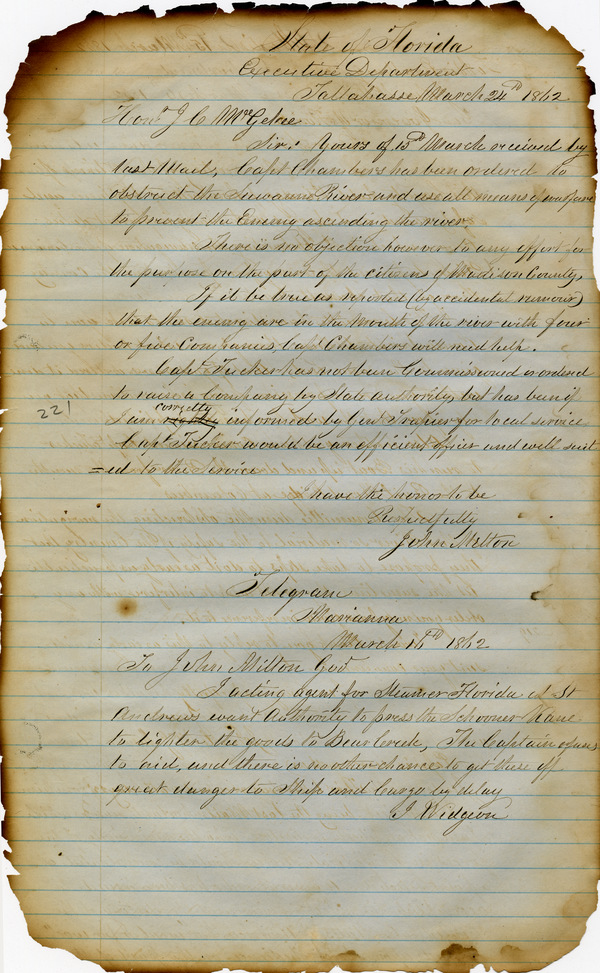 State of Florida
Executive Department
Tallahassee March 24th 1862
Honl J C McGehee
Sir: Yours of 15th March received by
last Mail, Capt Chambers has been ordered to
obstruct the Suwannee River and use all means of warfare
to prevent the Enemy ascending the river
There is no objection however to any effort for
the purpose on the part of the citizens of Madison County,
If it be true as reported (by accidental rumour)
that the enemy are in the mouth of the river with four
or five Companies, Capt Chambers will need help.
Capt Tucker has not been Commissioned or ordered
to raise a Company by State authority, but has been if
221
correctly
I am informed by Genl Trapier for local service
Capt Tucker would be an efficient officer and well suit
=ed to the service
I have the honor to be
Respectfully
John Milton
Telegram
Marianna
March 16th 1862
To John Milton Gov
I acting agent for Steamer Florida at St
Andrews want Authority to press the Schooner Kane
to lighter the goods to Bear Creek, The Captain refuses
to aid, and there is no other chance to get these off
great danger to Ship and Cargo by delay
J Widgeon